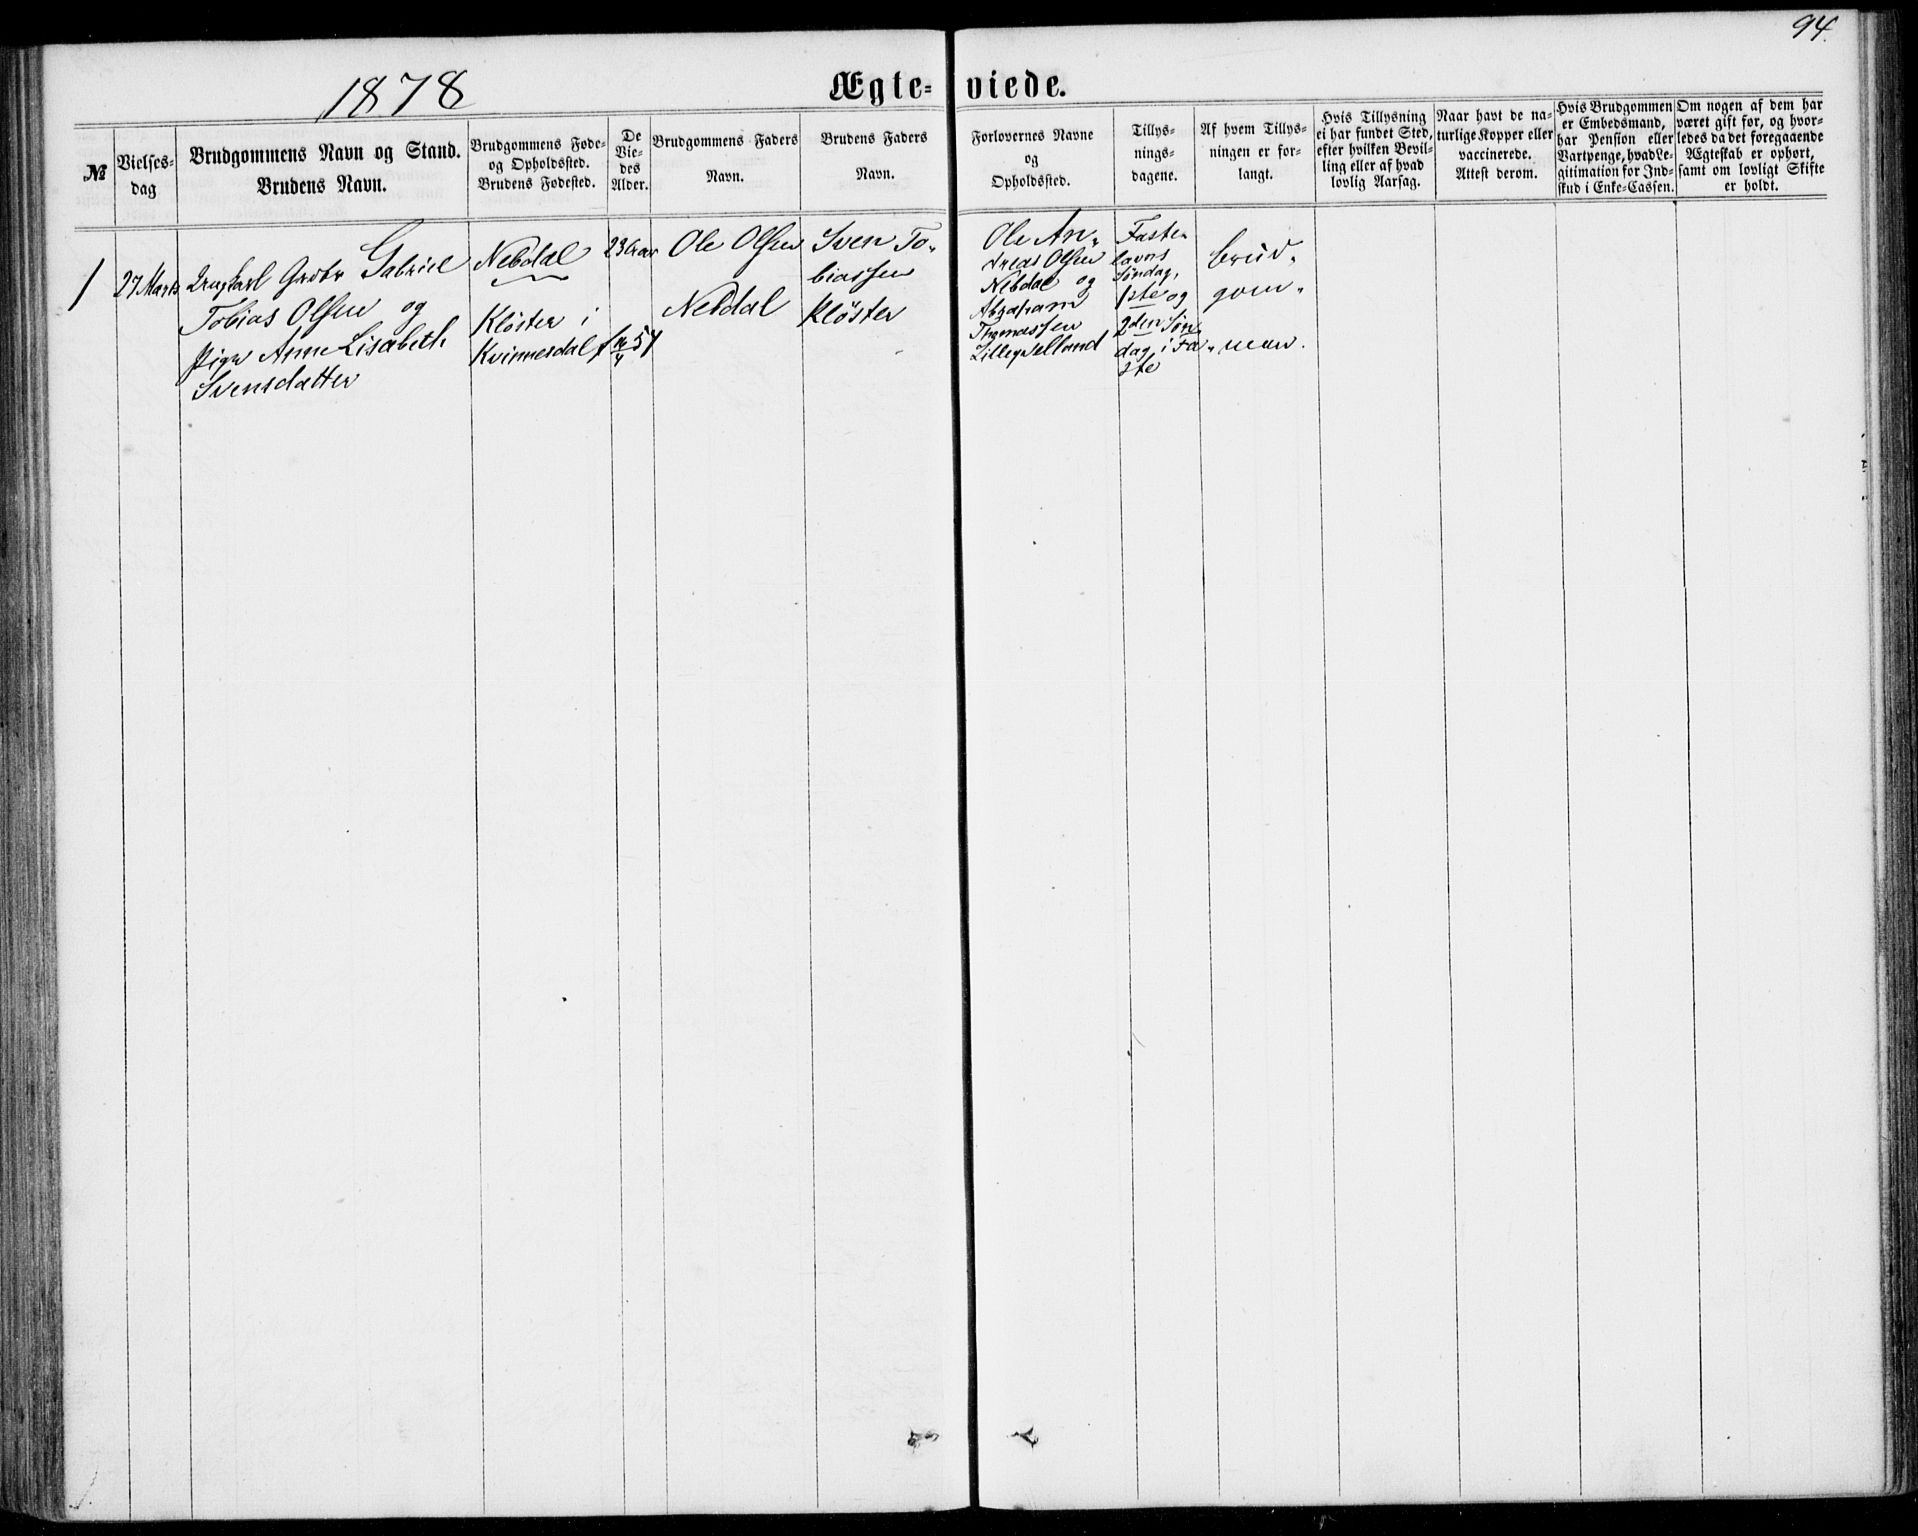 94.
1878
Ægte-viede.
№
Vielses-
dag
Brudgommens Navn og Stand.
Brudens Navn.
Brudgommens Føde-
og Opholdssted.
Brudens Fødested.
De
Vie-
des
Alder.
Brudgommens Faders
Navn.
Brudens Faders
Navn.
Forlovernes Navne
og
Opholdssted.
Tillys-
nings-
dagene.
Af hvem Tillys-
ningen er for-
langt.
Hvis Tillysning
ei har fundet Sted,
efter hvilken Bevil-
ling eller af hvad
lovlig Aarsag.
Naar havt de na-
turlige Kopper eller
vaccinerede.
Attest derom.
Hvis Brudgommen
er Embedsmand,
har Pension eller
Vartpenge, hvad Le-
gitimation for Ind-
skud i Enke-Cassen.
Om nogen af dem har
været gift før, og hvor-
ledes da det foregaaende
Ægteskab er ophørt,
samt om lovligt Skifte
er holdt.
1
27 Marts
Ungkarl Gabriel
Tobias Olsen og
Pige Anne Lisabeth
Svensdatter
Nebdal
Kløster i
Kvinnesdal
23 Aar
57
Ole Olsen
Nebdal
Sven To-
biassen
Kløster
Ole An-
dreas Olsen
Nebdal og
Abraham
Thomassen
Faste-
lavns
Søndag,
1ste og
2den Søn
dag i Fa-
ste
brud-
gom-
men.